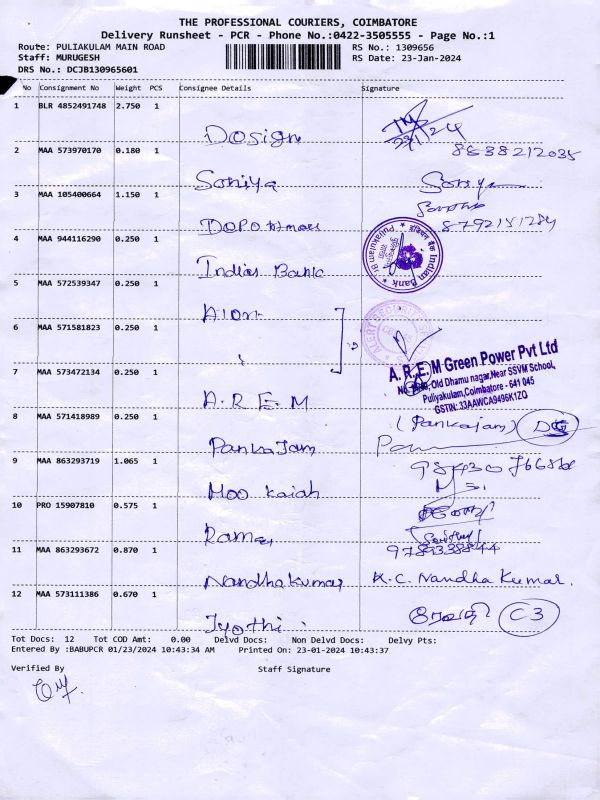 THE PROFESSIONAL COURIERS, COIMBATORE
Delivery Runsheet - PCR - Phone No.:0422-3505555 - Page No.:1
Route: PULIAKULAM MAIN ROAD RS No.: 1309656
Staff: MURUGESH RS Date: 23-Jan-2024
DRS No.: DCJB130965601
No Consignment No Weight PCS Consignee Details Signature
1 BLR 4852491748 2.750 1
Dosign 23/1/24
8838212035
2 MAA 573970170 0.180 1
Soniya Soniya
3 MAA 105400664 1.150 1
8792151284
4 MAA 944116290 0.250 1
Indian Bank
Indian Bank
Puliakulam
5 MAA 572539347 0.250 1
Alert
6 MAA 571581823 0.250 1
A.R.E.M Green Power Pvt Ltd
Old Dhamu nagar,Near SSVM School,
Puliyakulam,Coimbatore - 641 045
GSTIN: 33AAWCA9496K1ZQ
7 MAA 573472134 0.250 1
A.R.E.M
8 MAA 571418989 0.250 1
(Pankajam)
Pankajam
9 MAA 863293719 1.065 1
Mookaiah
10 PRO 15907810 0.575 1
Rama
9789338844
11 MAA 863293672 0.870 1
Nandhakumar K.C. Nandha Kumar.
12 MAA 573111386 0.670 1
Jyothi ரேவதி C3
Tot Docs: 12 Tot COD Amt: 0.00 Delvd Docs: Non Delvd Docs: Delvy Pts:
Entered By :BABUPCR 01/23/2024 10:43:34 AM Printed On: 23-01-2024 10:43:37
Verified By Staff Signature